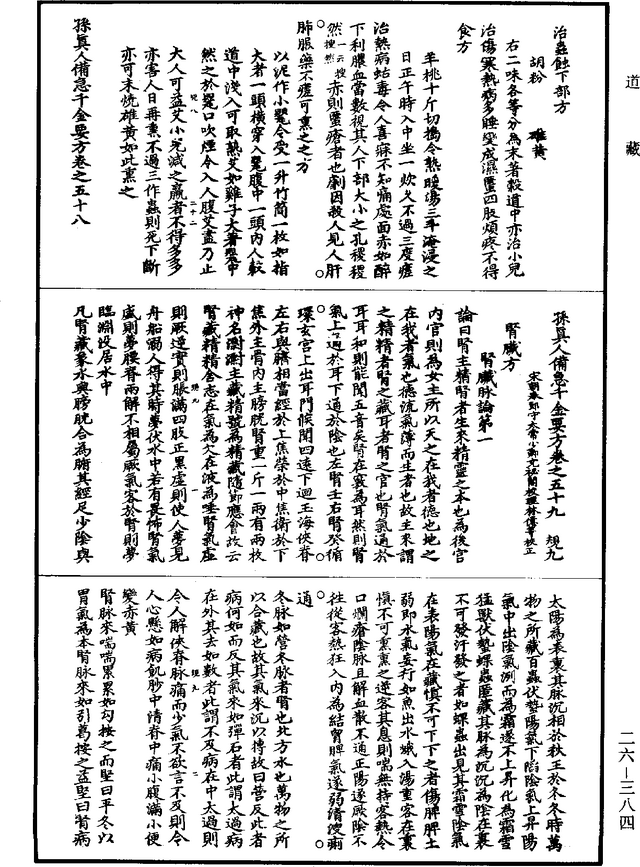 治蟲蝕下部方
胡粉 雄黃
右二味各等分為末著穀道中亦治小兒
治傷寒熱病多睡變成濕䘌四肢煩疼不得
食方
羊桃十斤切擣令熟暖湯三斗淹浸之
日正午時入中坐一炊久不過三度瘥
治熱病蛄毒令人喜寐不知痛處面赤如醉
下利膿血當數視其人下部大小之孔稷稷
然一云搜搜然赤則䘌瘡者也劇因殺人見人肝
肺服藥不瘥可熏之之方
以泥作小甖令受一升竹筒一枚如指
大者一頭橫穿入甖腹中一頭內人穀
道中淺入可取熟艾如雞子大著甖中
然之於甖口吹煙令入人腹艾盡乃止
大人可益艾小兒減之羸者不得多多
亦害人日再熏不過三作蟲則死下斷
亦可末燒雄黃如此熏之
孫真人備急千金要方卷之五十八
孫真人備急千金要方卷之五十九 規九
宋朝奉郎守太常少卿充祕閣校理林億等校正
腎臟方
腎臟脉論第一
論曰腎主精腎者生來精靈之本也為後宮
內官則為女主所以天之在我者德也地之
在我者氣也德流氣薄而生者也故生來謂
之精精者腎之藏耳者腎之官也腎氣通於
耳耳和則能聞五音矣腎在竅為耳然則腎
氣上通於耳下通於陰也左腎壬右腎癸循
環玄宮上出耳門候聞四遠下迴玉海俠脊
左右與臍相當經於上焦榮於中焦衛於下
焦外主骨內主膀胱腎重一斤一兩有兩枚
神名㵝㵝主藏精號為精藏隨節應會故云
腎藏精精舍志在氣為欠在液為唾腎氣虛
則厥逆實則脹滿四肢正黑虛則使人夢見
舟船溺人得其時夢伏水中若有畏怖腎氣
盛則夢腰脊兩解不相屬厥氣客於腎則夢
臨淵沒居水中
凡腎藏象水與膀胱合為腑其經足少陰與
太陽為表裏其脉沉相於秋王於冬冬時萬
物之所藏百蟲伏蟄陽氣下陷陰氣上昇陽
氣中出陰氣冽而為霜遂不上昇化為霜雪
猛獸伏蟄蝶蟲匿藏其脉為沉沉為陰在裏
不可發汗發之者如蝶蟲出見其霜雪陰氣
在表陽氣在藏慎不可下下之者傷脾脾土
弱即水氣妄行如魚出水蛾入湯重客在裏
慎不可熏熏之逆客其息則喘無持客熱令
口爛瘡陰脉且解血散不通正陽遂厥陰不
往從客熱狂入內為結胸脾氣遂弱清溲痢
通
冬脉如營冬脉者腎也北方水也萬物之所
以合藏也故其氣來沉以搏故曰營反此者
病何如而反其氣來如彈石者此謂太過病
在外其去如數者此謂不及病在中太過則
令人解㑊脊脉痛而少氣不欲言不及則令
人心懸如病飢䏚中清脊中痛小腹滿小便
變赤黃
腎脉來喘喘累累如勾按之而堅曰平冬以
胃氣為本腎脉來如引葛按之益堅曰腎病
道藏
二六—三八四